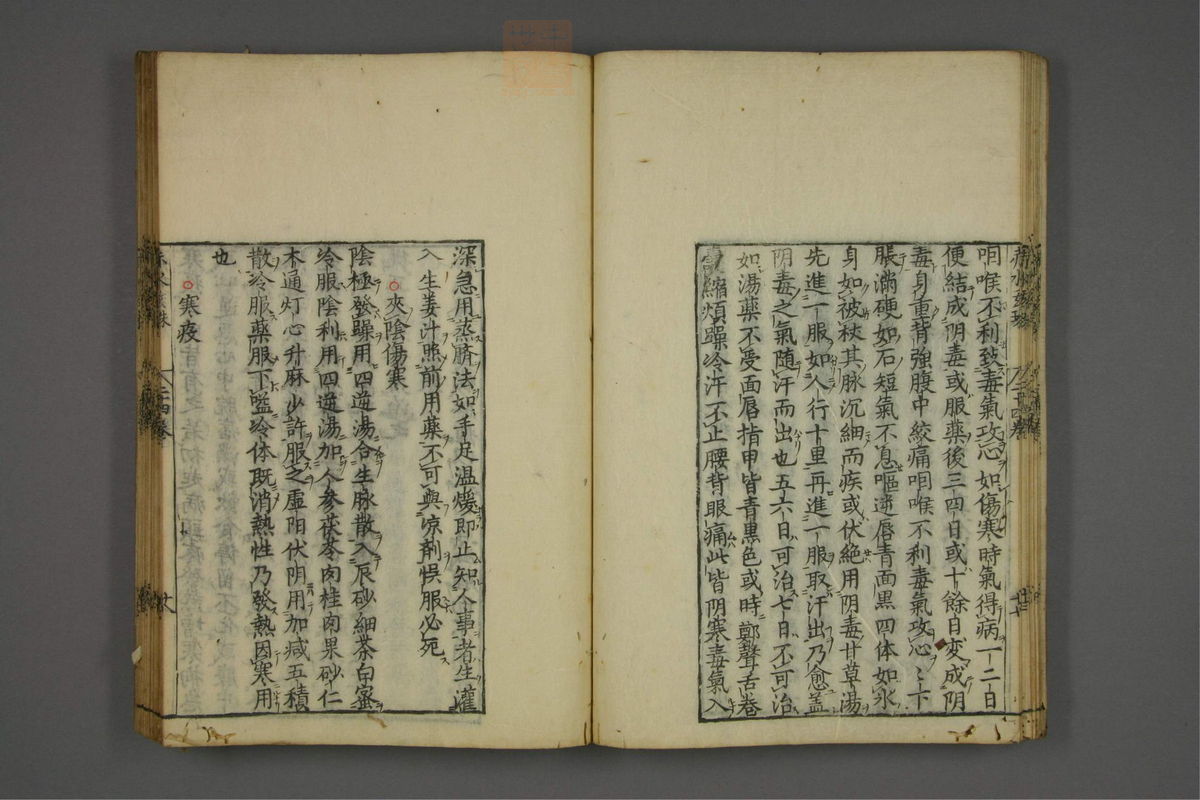 咽喉不利致毒氣攻心如傷寒時氣得病一二日
便結成阴毒或服藥後三四日或十餘日变成阴
毒身重背強腹中絞痛咽喉不利毒氣攻心心下
脹滿硬如石短氣不息嘔逆唇青面黒四体如氷
身如被杖其脉沉細而疾或伏絶用阴毒甘草湯
先進一服如人行十里再進一服取汗出乃愈盖
阴毒之氣随汗而出也五六日可治七日不可治
如湯藥不受面唇指甲皆青黒色或時鄭聲舌卷
囊縮煩躁冷汗不止腰背眼痛此皆阴寒毒氣入
深急用蒸臍法如手足温煖即止知人事者生灌
入生姜汁照前用藥不可與凉剤悮服必死
○夾陰傷寒
陰極發躁用四逆湯合生脉散入辰砂細茶白蜜
冷服陰利用四逆湯加人参茯苓肉桂肉果砂仁
木通灯心升麻少許服之虚阳伏阴用加减五積
散冷服藥服下嗌冷体既消熱性乃發熱因寒用
也
○寒疫